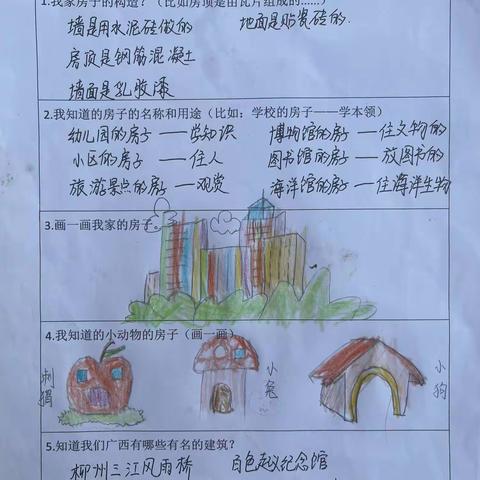 1.我家房子的构造？（比如房顶是由瓦片组成的……）
墙是用水泥砖做的 地面是贴瓷砖的.
房顶是钢筋混凝土
墙面是乳胶漆
2.我知道的房子的名称和用途（比如：学校的房子——学本领）
幼儿园的房子——学知识 博物馆的房子——住文物的
小区的房子——住人 图书馆的房子——放图书的
旅游景点的房子——观赏 海洋馆的房子——住海洋生物
3.画一画我家的房子。
4.我知道的小动物的房子（画一画）
刺猬
小兔
小狗
5.知道我们广西有哪些有名的建筑？
柳州三江风雨桥 百色起义纪念馆